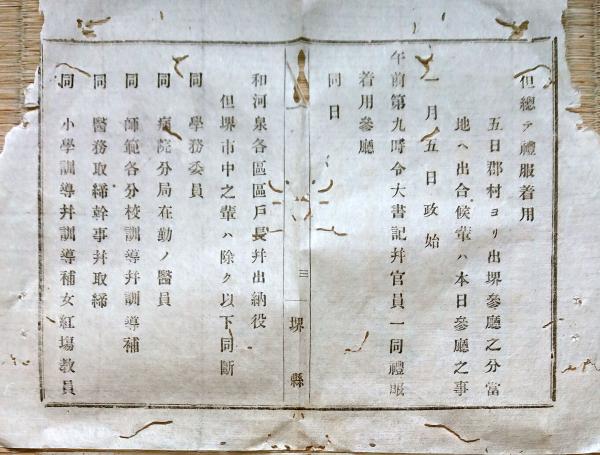 但總テ禮服着用
五日郡村ヨリ出堺參廳之分當
地ヘ出合候輩ハ本日參廳之事
一月五日政始
午前第九時令大書記幷官員一同禮服
着用參廳
同日
三
堺縣
和河泉各區區戸長幷出納役
但堺市中之輩ハ除ク以下同斷
同 學務委員
同 病院分局在勤ノ醫員
同 師範各分校訓導幷訓導補
同 醫務取締幹事幷取締
同 小學訓導幷訓導補女紅場敎員